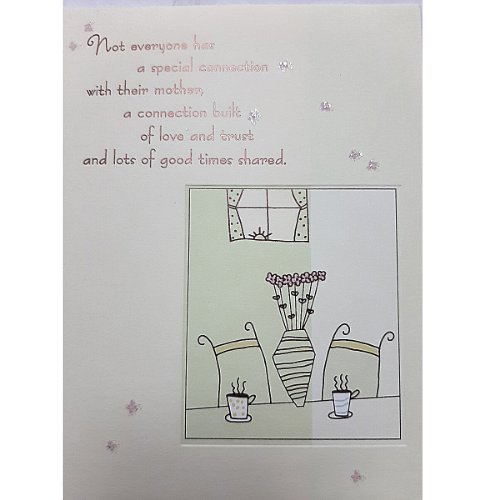 Not everyone has
a special connection
with their mother,
a connection built
of love and trust
and lots of good times shared.